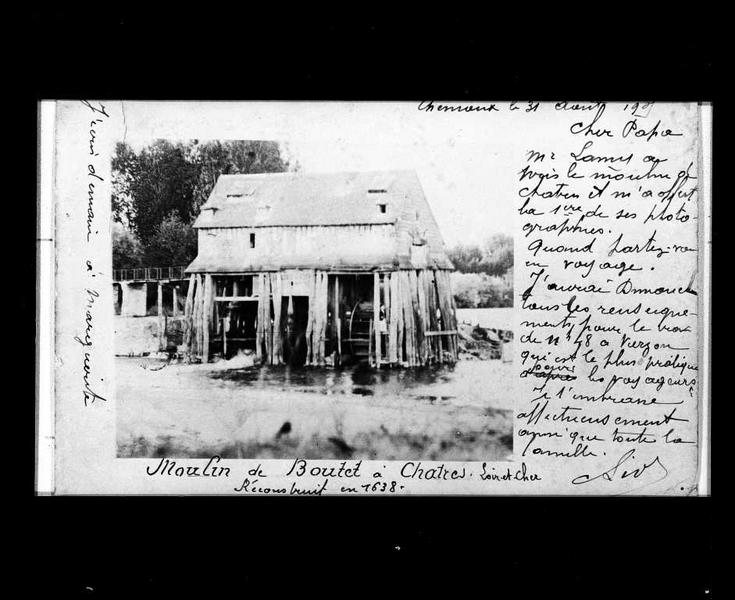 J'écris demain à Marguerite
le 31 Août
Cher Papa
Mr Lamy a
pris le moulin de
Chatres et m'a offert
la 1ère de ses photo
graphies.
Quand partez-vous
en voyage.
J'aurai Dimanche
tous les renseigne-
ments, pour le train
de n° 48 à Vierzon
qui est le plus pratique
pour les voyageurs
Je t'embrasse
affectueusement
ainsi que toute la
famille.
Moulin de Boutet à Chatres. Loir et Cher
Réconstruit en 1638.